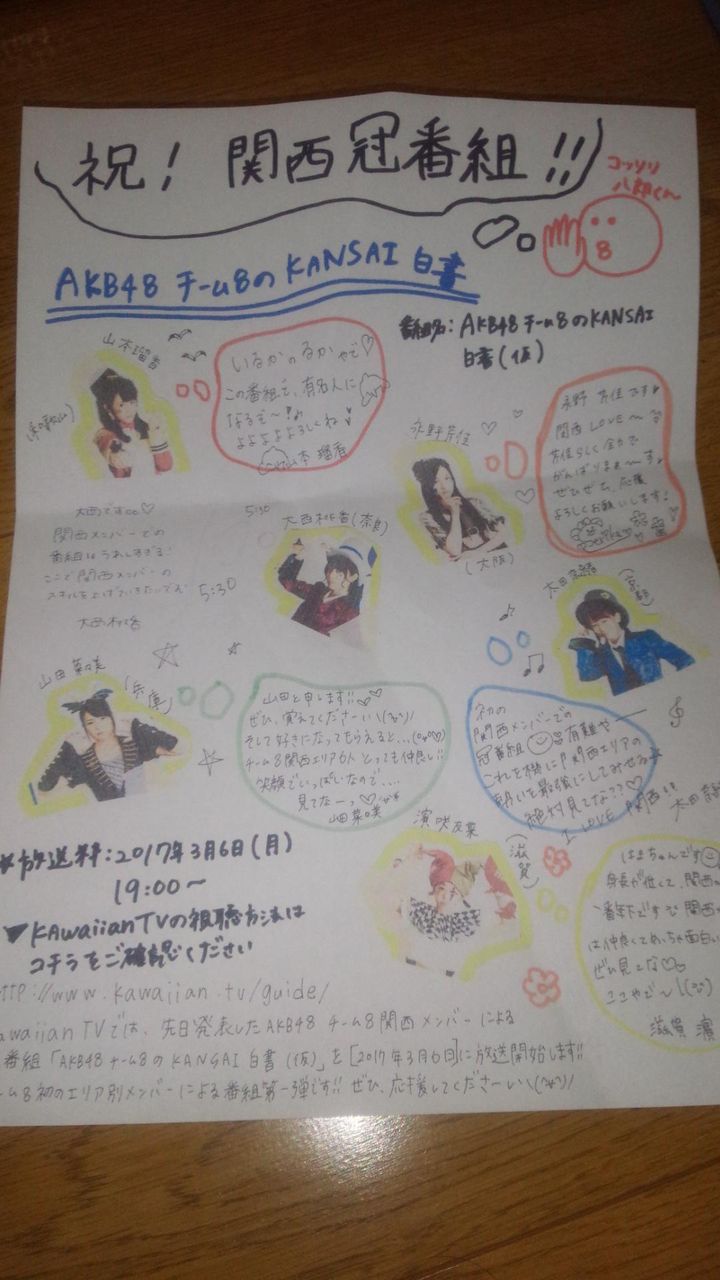 祝! 関西冠番組!!
コッソリ
八郎くん
8
AKB48 チーム8のKANSAI 白書
番組名:AKB48チーム8のKANSAI
白書(仮)
山本瑠香
(和歌山)
いるかのるかやで♡
この番組で、有名人に
なるぞ〜!
よよよよよろしくね
山本 瑠香
永野芹佳
(大阪)
永野 芹佳です
関西 LOVE〜
芹佳らしく全力で
がんばりまぁ〜す
ぜひぜひ、応援
よろしくお願いします!
大西です
関西メンバーでの
番組はうれしすぎる!
ここで関西メンバーの
スキルを上げていきたいです
大西桃香
5:30
5:30
大西桃香(奈良)
太田奈緒
(京都)
山田菜々美
(兵庫)
山田と申します!!
ぜひ、覚えてくださーい\(^ω^)/
そして好きになってもらえると...
チーム8関西エリア6人 とっても仲良し!!
笑顔でいっぱいなので....
見てなーっ♡
山田菜々美
初の
関西メンバーでの
冠番組 有難や
これを機に関西エリアの
勢いを最強にしてみせる
絶対見てな??♡
I LOVE 関西!!
太田奈緒
濵咲友菜
(滋賀)
はまちゃんです
身長が低くて、関西
一番年下です
は仲良くてめっちゃ面白い
ぜひ見てな♡
ここやで〜
滋賀 濵
放送日:2017年3月6日(月)
19:00〜
▼KAwaiianTVの視聴方法は
コチラをご確認ください
http://www.kawaiian.tv/guide/
awaiianTVでは、先日発表したAKB48 チーム8関西メンバーによる
番組「AKB48チーム8のKANSAI白書(仮)」を[2017年3月6日]に放送開始します!!
ーム8初のエリア別メンバーによる番組第一弾です!! ぜひ、応援してくださーい\(^ω^)/